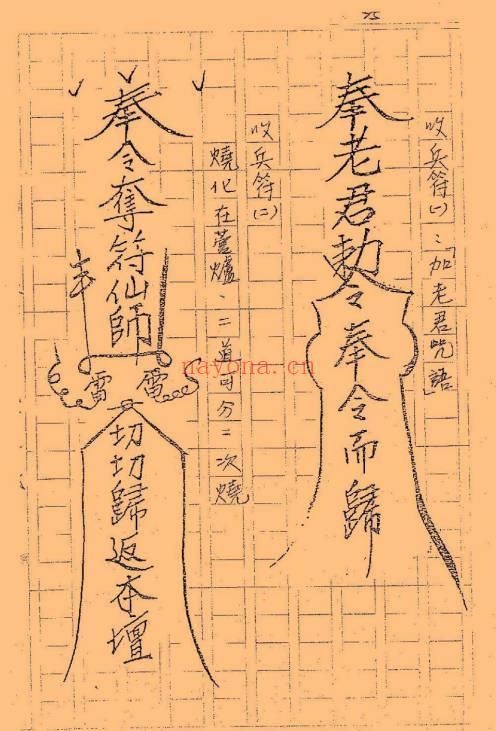 收兵符(一):「加老君咒語」
奉老君勅令奉令而歸
收兵符(二)
燒化在爐、二道分二次燒
奉令奪符仙師
雷 雷
切切歸返本壇
nayona.cn